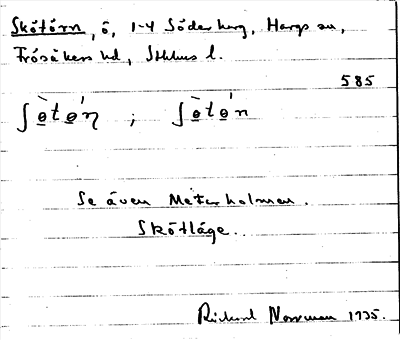 Skötörn, ö, 1-4 Söderberg, Hargs sn,
Frösåkers hd, Sthlms l.
585
ʃɵ̀tɵ́ŋ ; ʃɵ̀tɵ́n
Se även Meterholmen.
Skötläge.
Richard Norrman 1935.